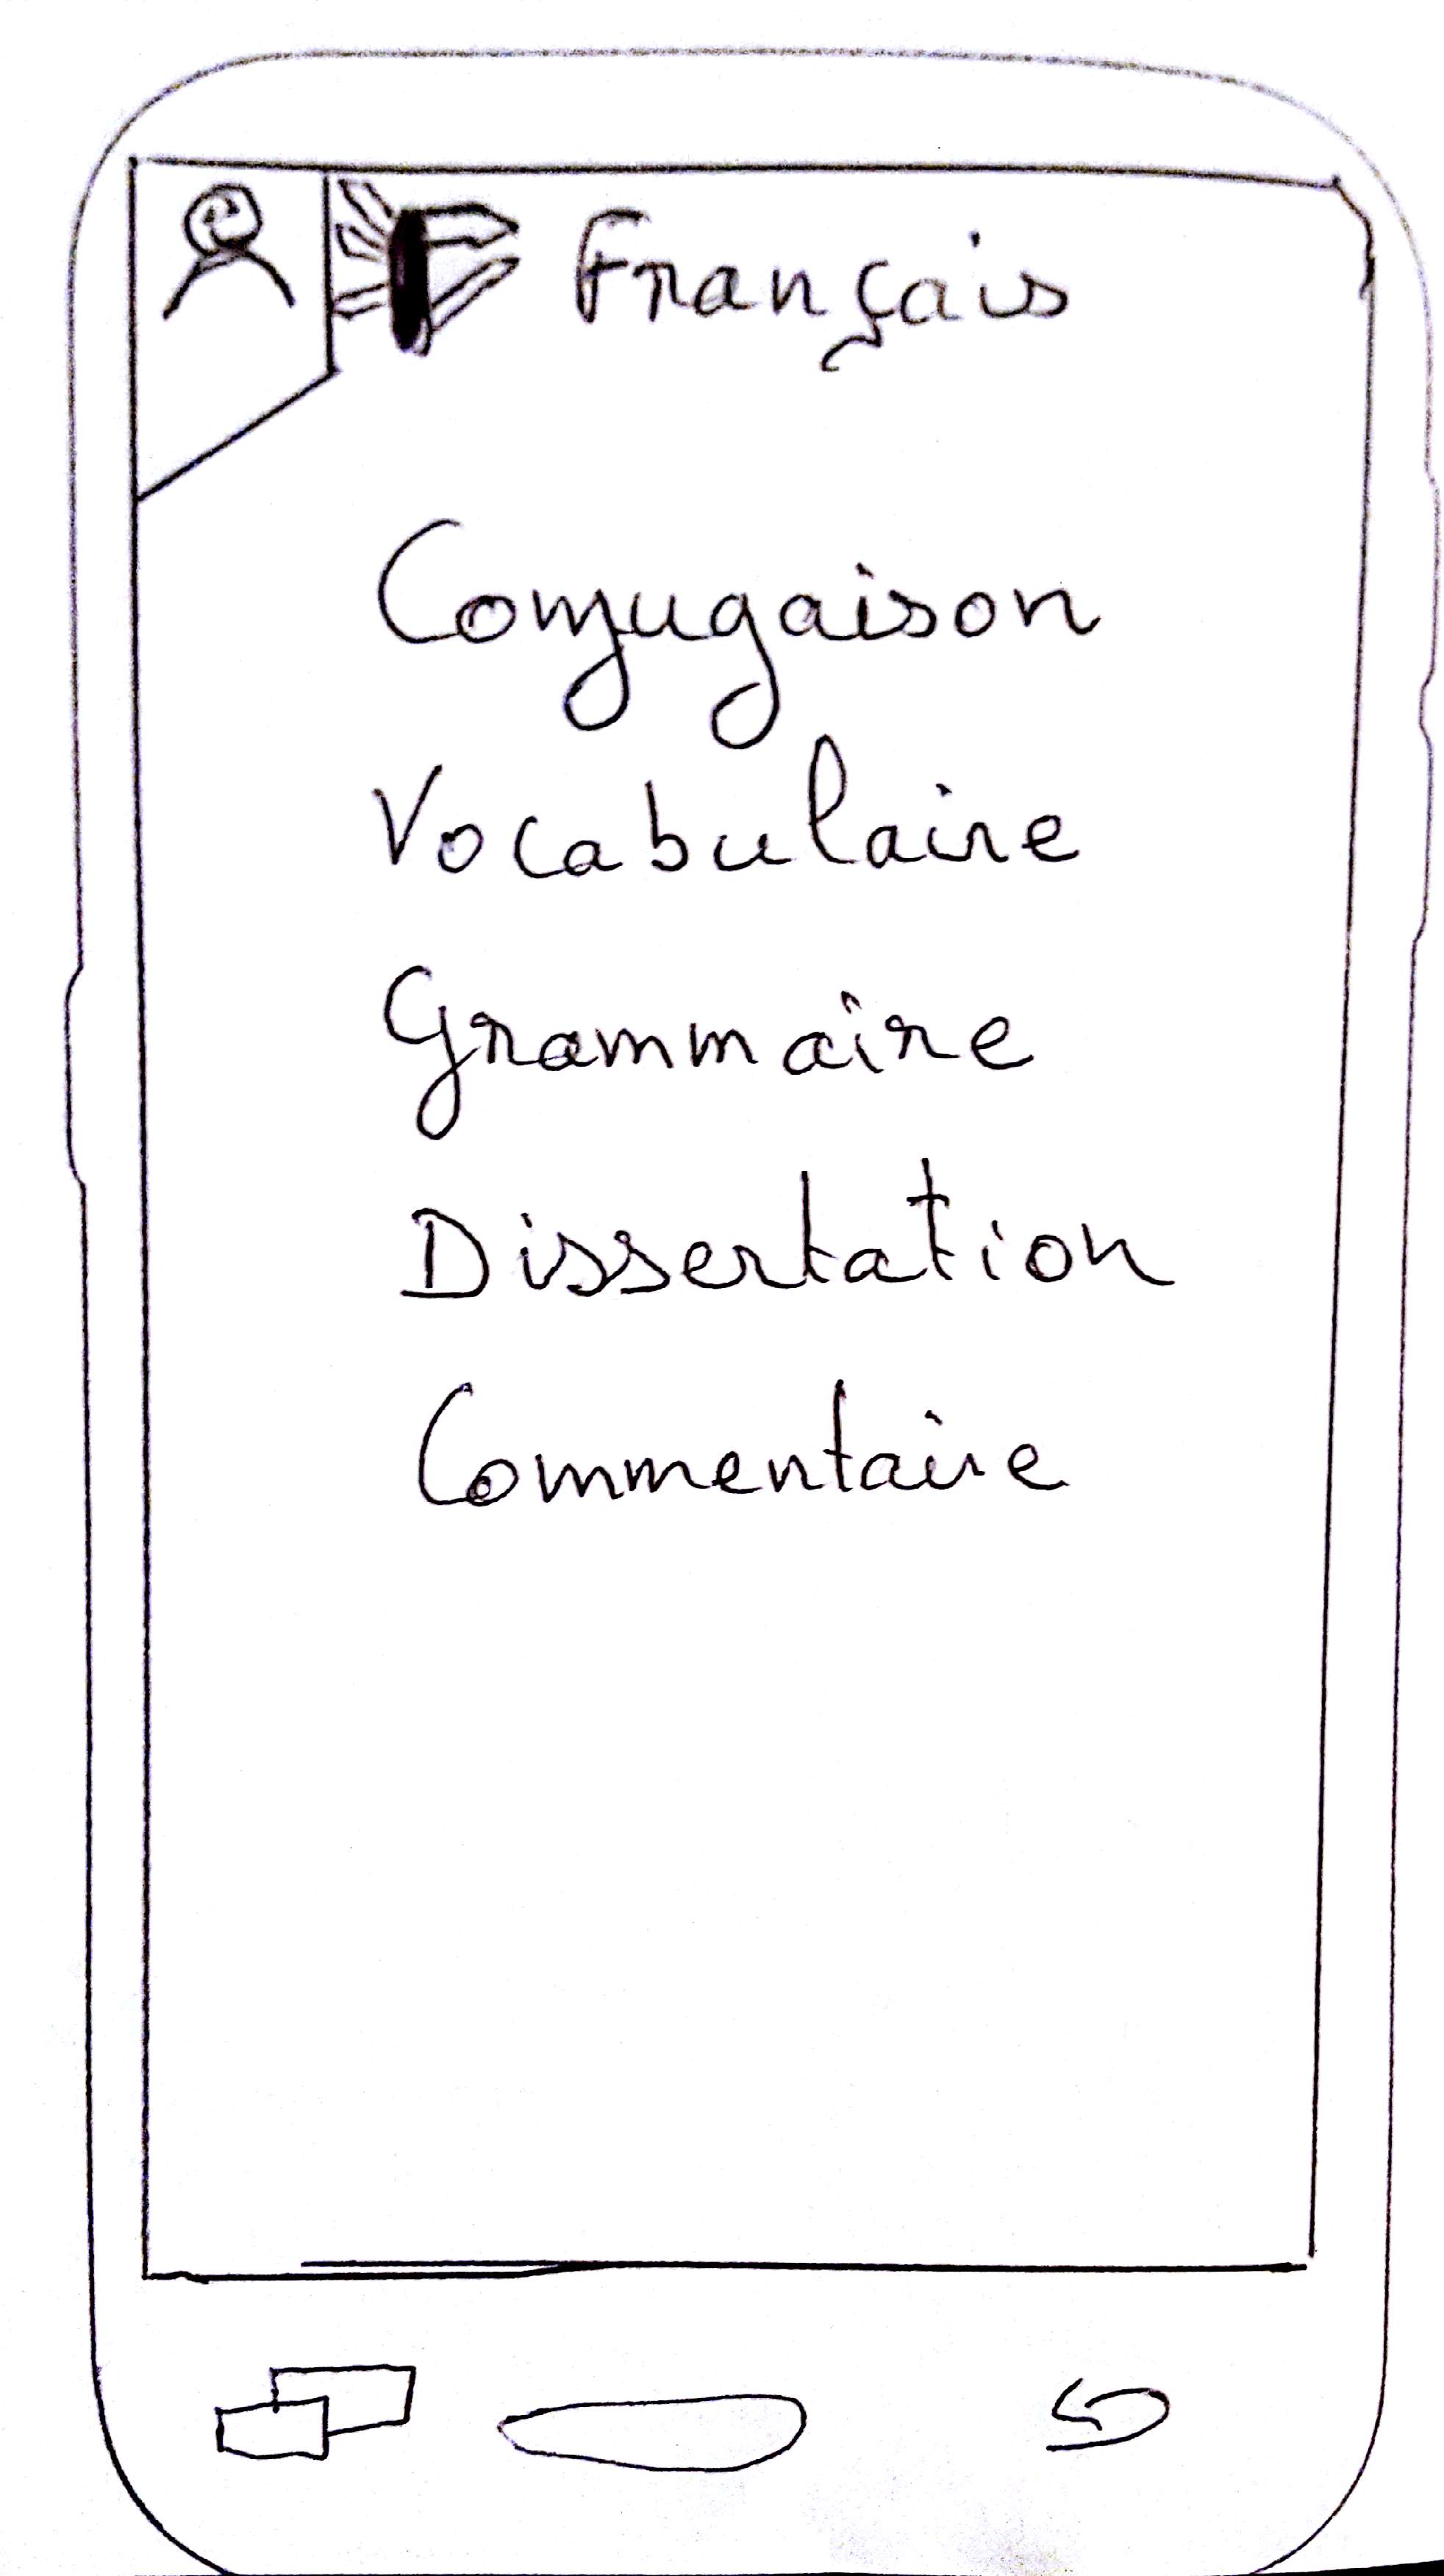 Français
Conjugaison
Vocabulaire
Grammaire
Dissertation
Commentaire